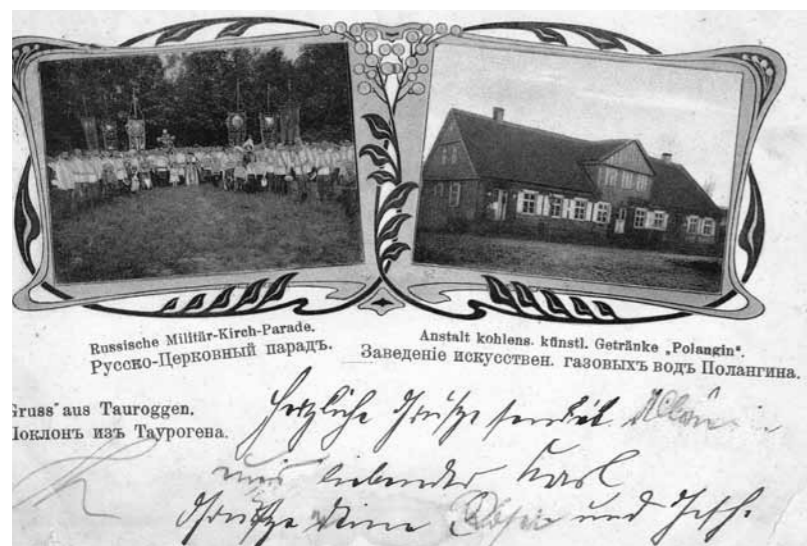 Russische Militär-Kirch-Parade.
Русско-Церковный парадъ.
Anstalt kohlens. künstl. Getränke „Polangin“.
Заведеніе искусствен. газовыхъ водъ Полангина.
Gruss aus Tauroggen.
Поклонъ изъ Таурогена.
Herzliche Grüße sendet
liebender Karl
Grüße Deine und